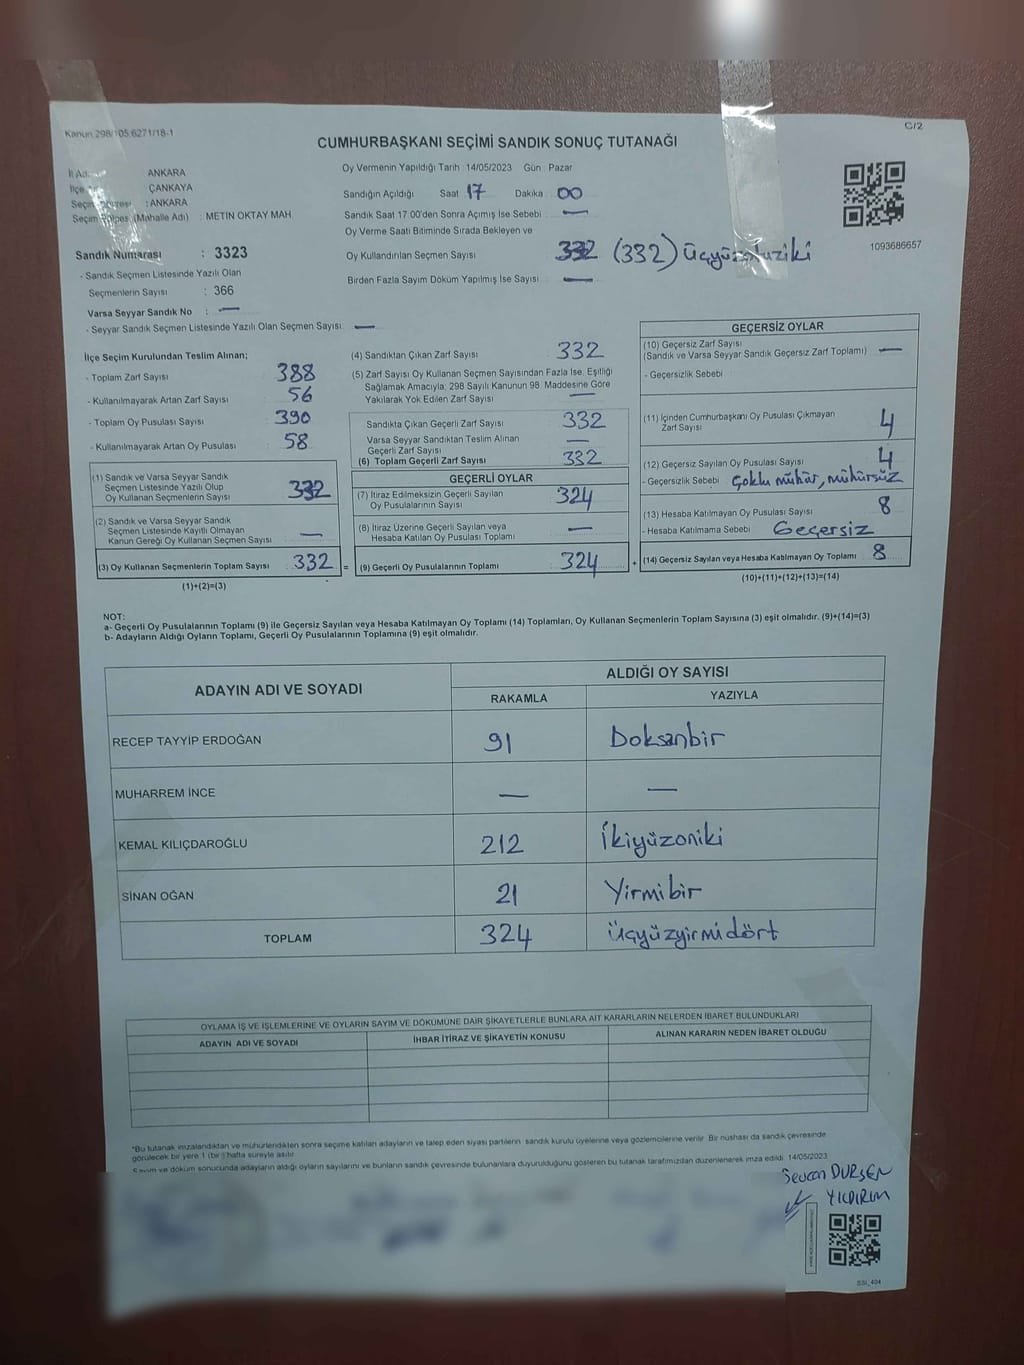 Kanun 298/105,6271/18-1
C/2
CUMHURBAŞKANI SEÇİMİ SANDIK SONUÇ TUTANAĞI
İl Adı ANKARA
İlçe ÇANKAYA
: ANKARA
Seçim Bölgesi (Mahalle Adı) : METİN OKTAY MAH.
Sandık Numarası : 3323
- Sandık Seçmen Listesinde Yazılı Olan
Seçmenlerin Sayısı : 366
Varsa Seyyar Sandık No : —
- Seyyar Sandık Seçmen Listesinde Yazılı Olan Seçmen Sayısı: —
Oy Vermenin Yapıldığı Tarih : 14/05/2023 Gün : Pazar
Sandığın Açıldığı Saat 17 Dakika 00
Sandık Saat 17.00'den Sonra Açımış İse Sebebi : —
Oy Verme Saati Bitiminde Sırada Bekleyen ve
Oy Kullandırılan Seçmen Sayısı 332 (332) üçyüzotuziki
Birden Fazla Sayım Döküm Yapılmış İse Sayısı : —
1093686657
İlçe Seçim Kurulundan Teslim Alınan;
- Toplam Zarf Sayısı 388
- Kullanılmayarak Artan Zarf Sayısı 56
- Toplam Oy Pusulası Sayısı 390
- Kullanılmayarak Artan Oy Pusulası 58
(1) Sandık ve Varsa Seyyar Sandık
Seçmen Listesinde Yazılı Olup
Oy Kullanan Seçmenlerin Sayısı 332
(2) Sandık ve Varsa Seyyar Sandık
Seçmen Listesinde Kayıtlı Olmayan
Kanun Gereği Oy Kullanan Seçmen Sayısı —
(3) Oy Kullanan Seçmenlerin Toplam Sayısı 332 =
(1)+(2)=(3)
(4) Sandıktan Çıkan Zarf Sayısı 332
(5) Zarf Sayısı Oy Kullanan Seçmen Sayısından Fazla İse, Eşitliği
Sağlamak Amacıyla; 298 Sayılı Kanunun 98. Maddesine Göre
Yakılarak Yok Edilen Zarf Sayısı —
Sandıkta Çıkan Geçerli Zarf Sayısı 332
Varsa Seyyar Sandıktan Teslim Alınan
Geçerli Zarf Sayısı —
(6) Toplam Geçerli Zarf Sayısı 332
GEÇERLİ OYLAR
(7) İtiraz Edilmeksizin Geçerli Sayılan
Oy Pusulalarının Sayısı 324
(8) İtiraz Üzerine Geçerli Sayılan veya
Hesaba Katılan Oy Pusulası Toplamı —
(9) Geçerli Oy Pusulalarının Toplamı 324 +
GEÇERSİZ OYLAR
(10) Geçersiz Zarf Sayısı
(Sandık ve Varsa Seyyar Sandık Geçersiz Zarf Toplamı) —
- Geçersizlik Sebebi
(11) İçinden Cumhurbaşkanı Oy Pusulası Çıkmayan
Zarf Sayısı 4
(12) Geçersiz Sayılan Oy Pusulası Sayısı 4
- Geçersizlik Sebebi Çoklu mühür, mühürsüz
(13) Hesaba Katılmayan Oy Pusulası Sayısı 8
- Hesaba Katılmama Sebebi Geçersiz
(14) Geçersiz Sayılan veya Hesaba Katılmayan Oy Toplamı 8
(10)+(11)+(12)+(13)=(14)
NOT:
a- Geçerli Oy Pusulalarının Toplamı (9) ile Geçersiz Sayılan veya Hesaba Katılmayan Oy Toplamı (14) Toplamları, Oy Kullanan Seçmenlerin Toplam Sayısına (3) eşit olmalıdır. (9)+(14)=(3)
b- Adayların Aldığı Oyların Toplamı, Geçerli Oy Pusulalarının Toplamına (9) eşit olmalıdır.
ADAYIN ADI VE SOYADI ALDIĞI OY SAYISI
RAKAMLA YAZIYLA
RECEP TAYYİP ERDOĞAN 91 Doksanbir
MUHARREM İNCE — —
KEMAL KILIÇDAROĞLU 212 İkiyüzoniki
SİNAN OĞAN 21 Yirmibir
TOPLAM 324 üçyüzyirmidört
OYLAMA İŞ VE İŞLEMLERİNE VE OYLARIN SAYIM VE DÖKÜMÜNE DAİR ŞİKAYETLERLE BUNLARA AİT KARARLARIN NELERDEN İBARET BULUNDUKLARI
ADAYIN ADI VE SOYADI İHBAR İTİRAZ VE ŞİKAYETİN KONUSU ALINAN KARARIN NEDEN İBARET OLDUĞU
*Bu tutanak imzalandıktan ve mühürlendikten sonra seçime katılan adayların ve talep eden siyasi partilerin sandık kurulu üyelerine veya gözlemcilerine verilir. Bir nüshası da sandık çevresinde
görülecek bir yere 1 (bir) hafta süreyle asılır.
Sayım ve döküm sonucunda adayların aldığı oyların sayılarını ve bunların sandık çevresinde bulunanlara duyurulduğunu gösteren bu tutanak tarafımızdan düzenlenerek imza edildi. 14/05/2023
Sevcan DURSEN
YILDIRIM
SSİ_404